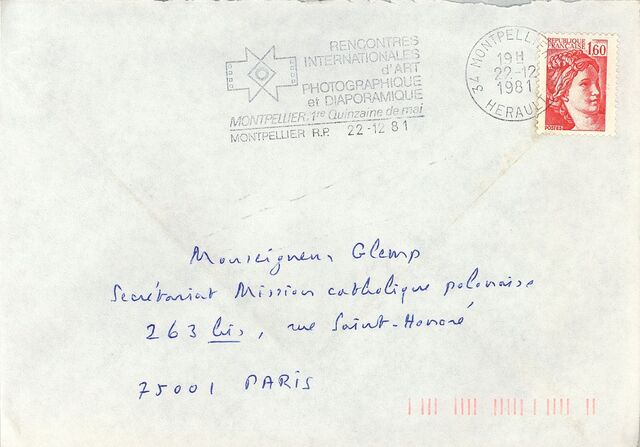 RENCONTRES
INTERNATIONALES
d'ART
PHOTOGRAPHIQUE
et DIAPORAMIQUE
MONTPELLIER, 1re Quinzaine de mai
MONTPELLIER R.P. 22-12 81
34 MONTPELLIER
19H
22-12
1981
HERAULT
REPUBLIQUE
FRANÇAISE
1,60
POSTES
Monseigneur Glemp
Secrétariat Mission catholique polonaise
263 bis, rue Saint-Honoré
75001 PARIS